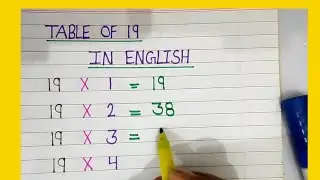 TABLE OF 19
IN ENGLISH
19 X 1 = 19
19 X 2 = 38
19 X 3 =
19 X 4